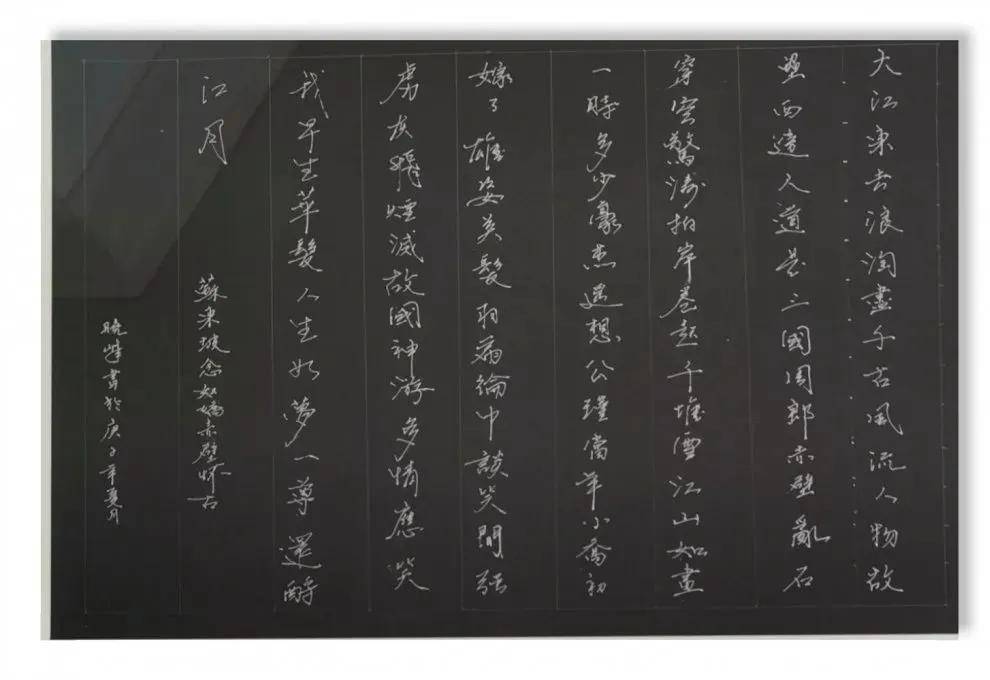 大江東去浪淘盡千古風流人物故
壘西邊人道是三國周郎赤壁亂石
穿空驚濤拍岸卷起千堆雪江山如畫
一時多少豪杰遥想公瑾當年小喬初
嫁了雄姿英髮羽扇綸巾談笑間强
虜灰飛煙滅故國神游多情應笑
我早生華髮人生如夢一尊還酹
江月
蘇東坡念奴嬌赤壁怀古
曉書於庚子年夏月